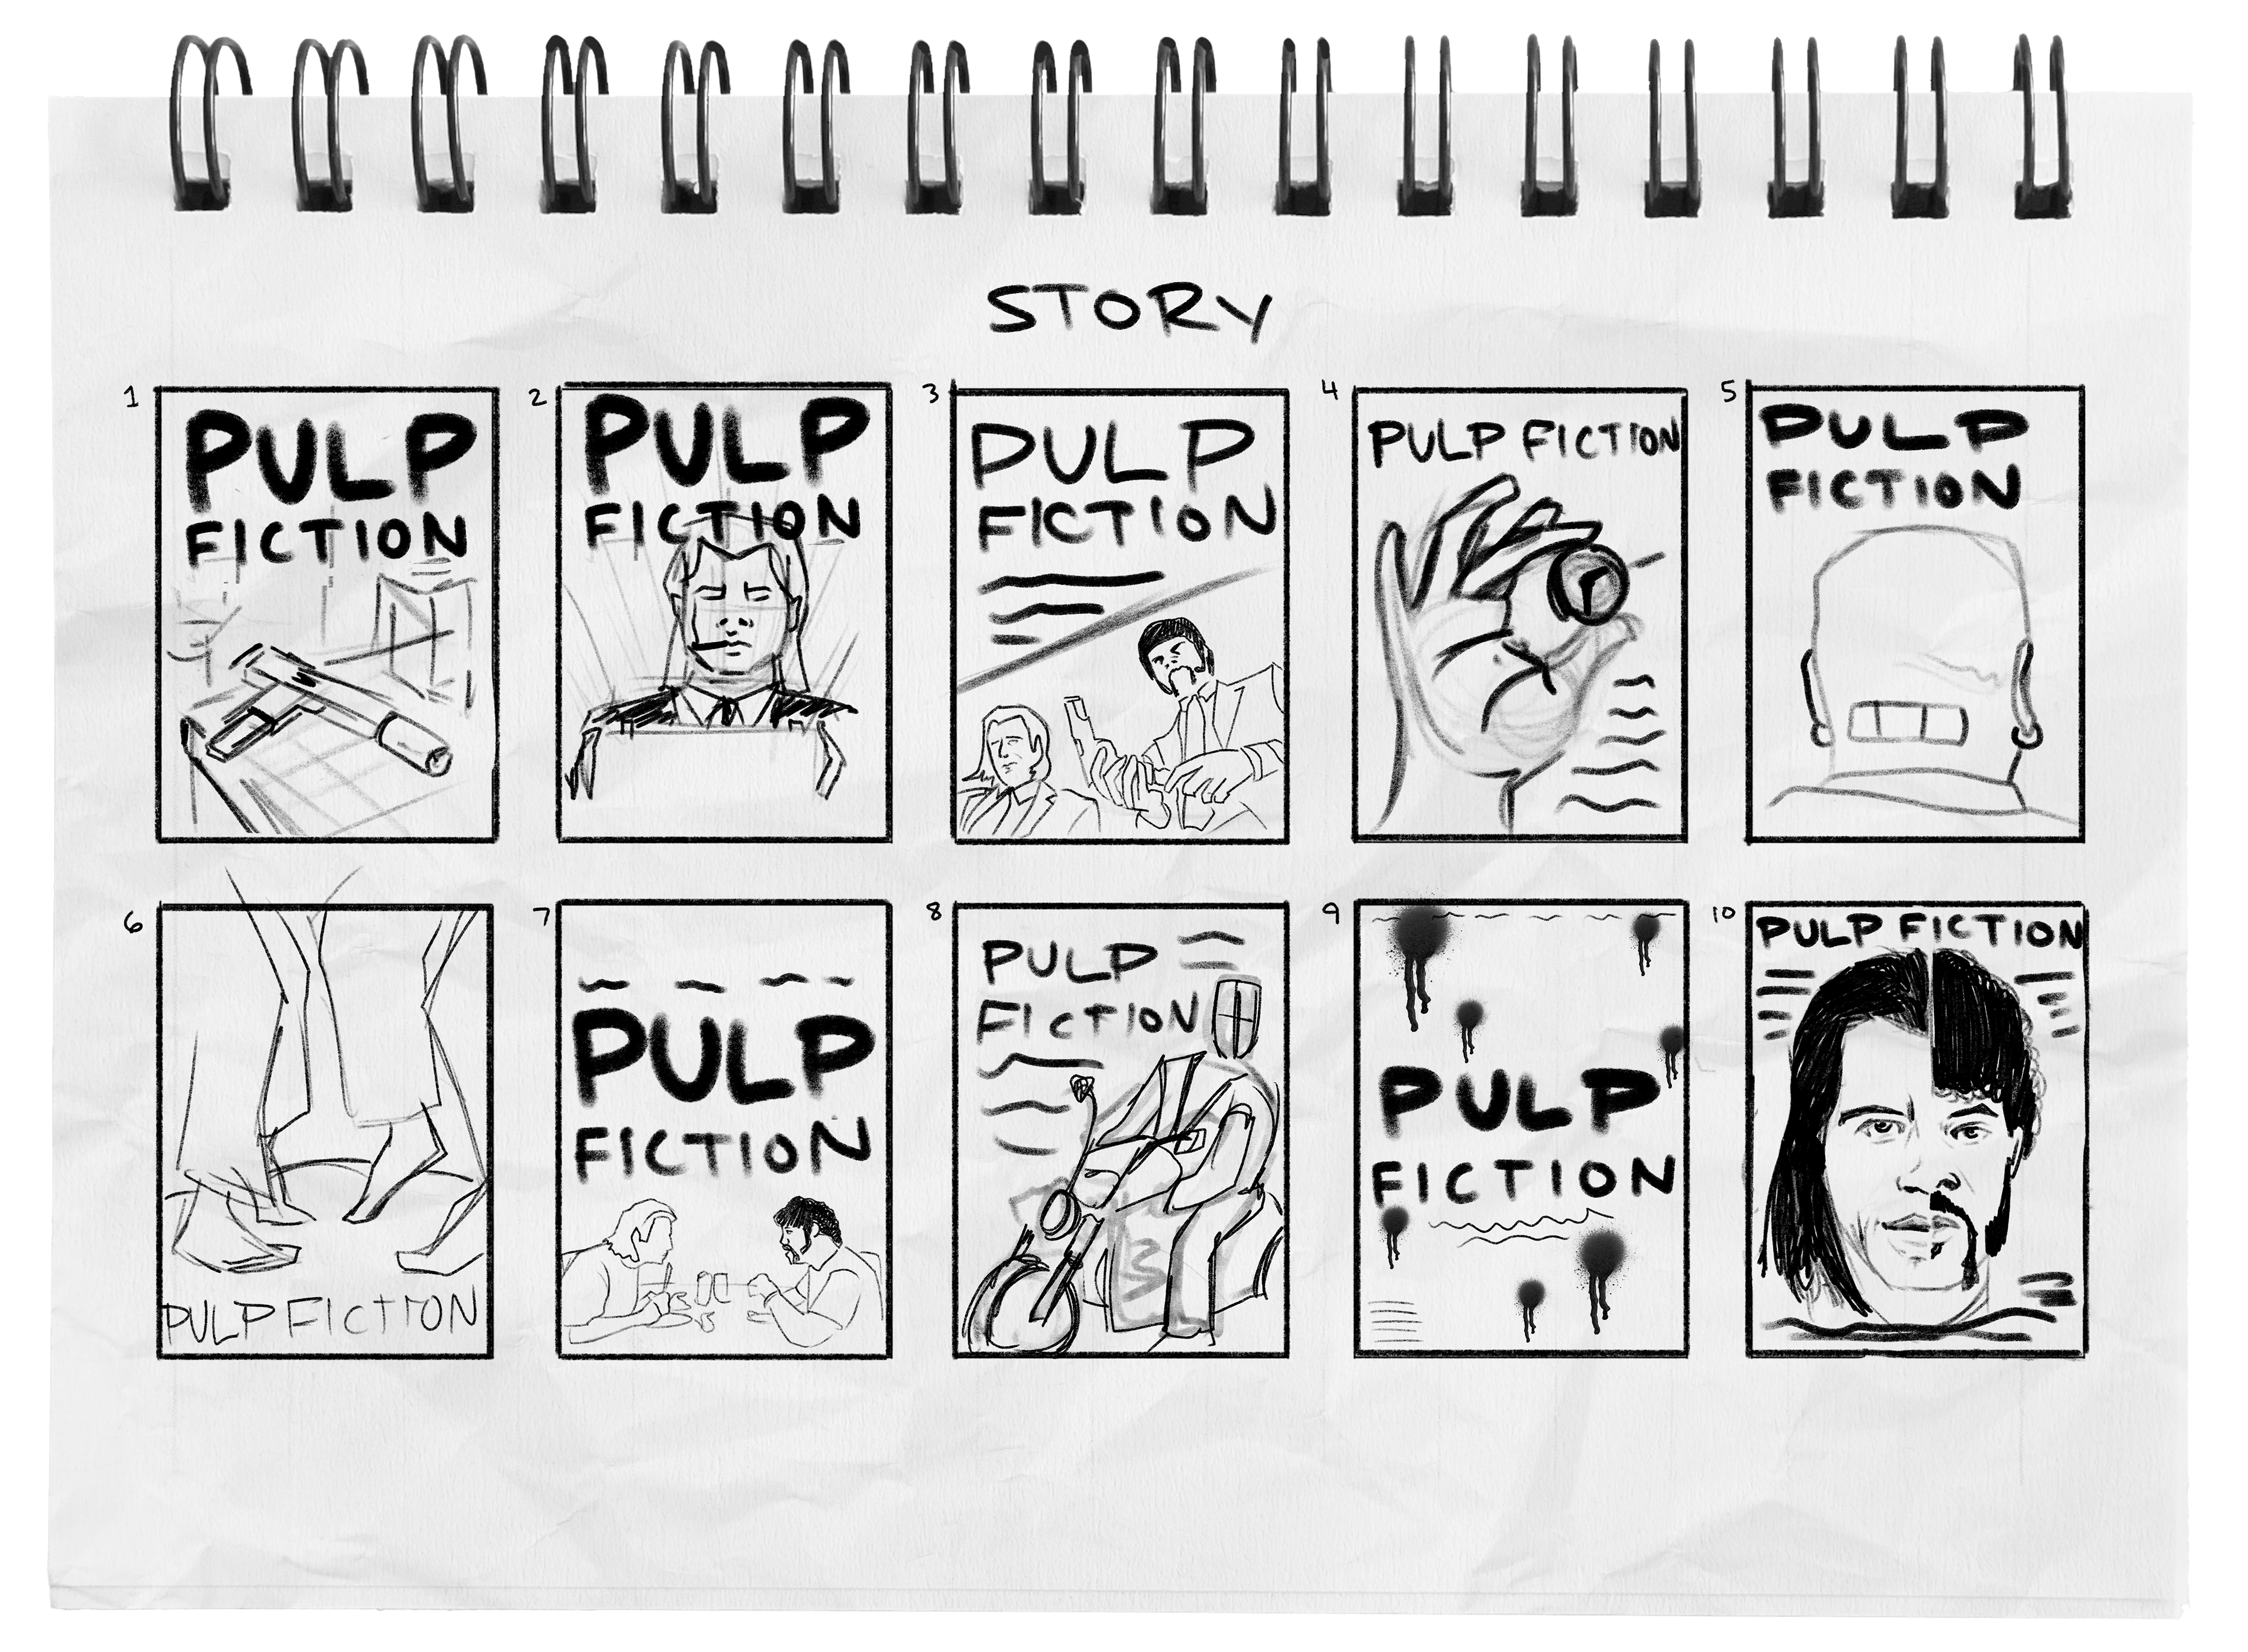 STORY
1
PULP
FICTION
2
PULP
FICTION
3
PULP
FICTION
4
PULP FICTION
5
PULP
FICTION
6
PULP FICTION
7
PULP
FICTION
8
PULP
FICTION
9
PULP
FICTION
10
PULP FICTION